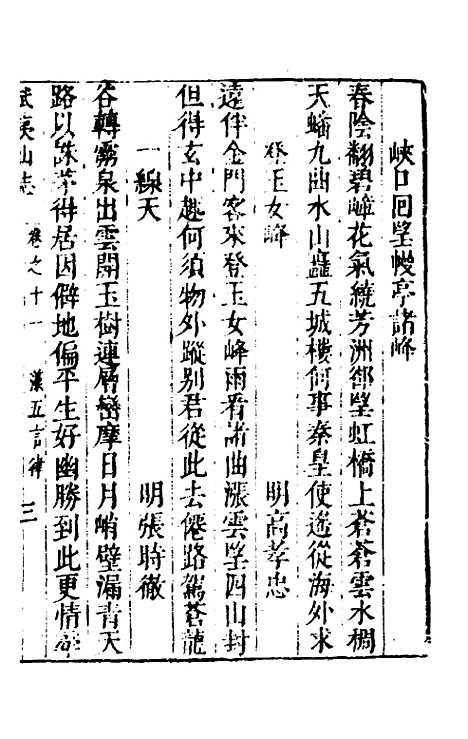 峽口回望幔亭諸峰
春陰翻碧嶂花氣繞芳洲卻望虹橋上蒼蒼雲水稠
天蟠九曲水山矗五城樓何事秦皇使遙從海外求
登玉女峰　明高孝忠
遠伴金門客來登玉女峰雨看諸曲漲雲望四山封
但得玄中趣何須物外蹤别君從此去僊路駕蒼龍
一線天　明張時徹
谷轉霧泉出雲開玉樹連層巒摩日月峭壁漏青天
路以誅茅得居因僻地偏平生好幽勝到此更情
武夷山志　卷之十一　溪五言律　三